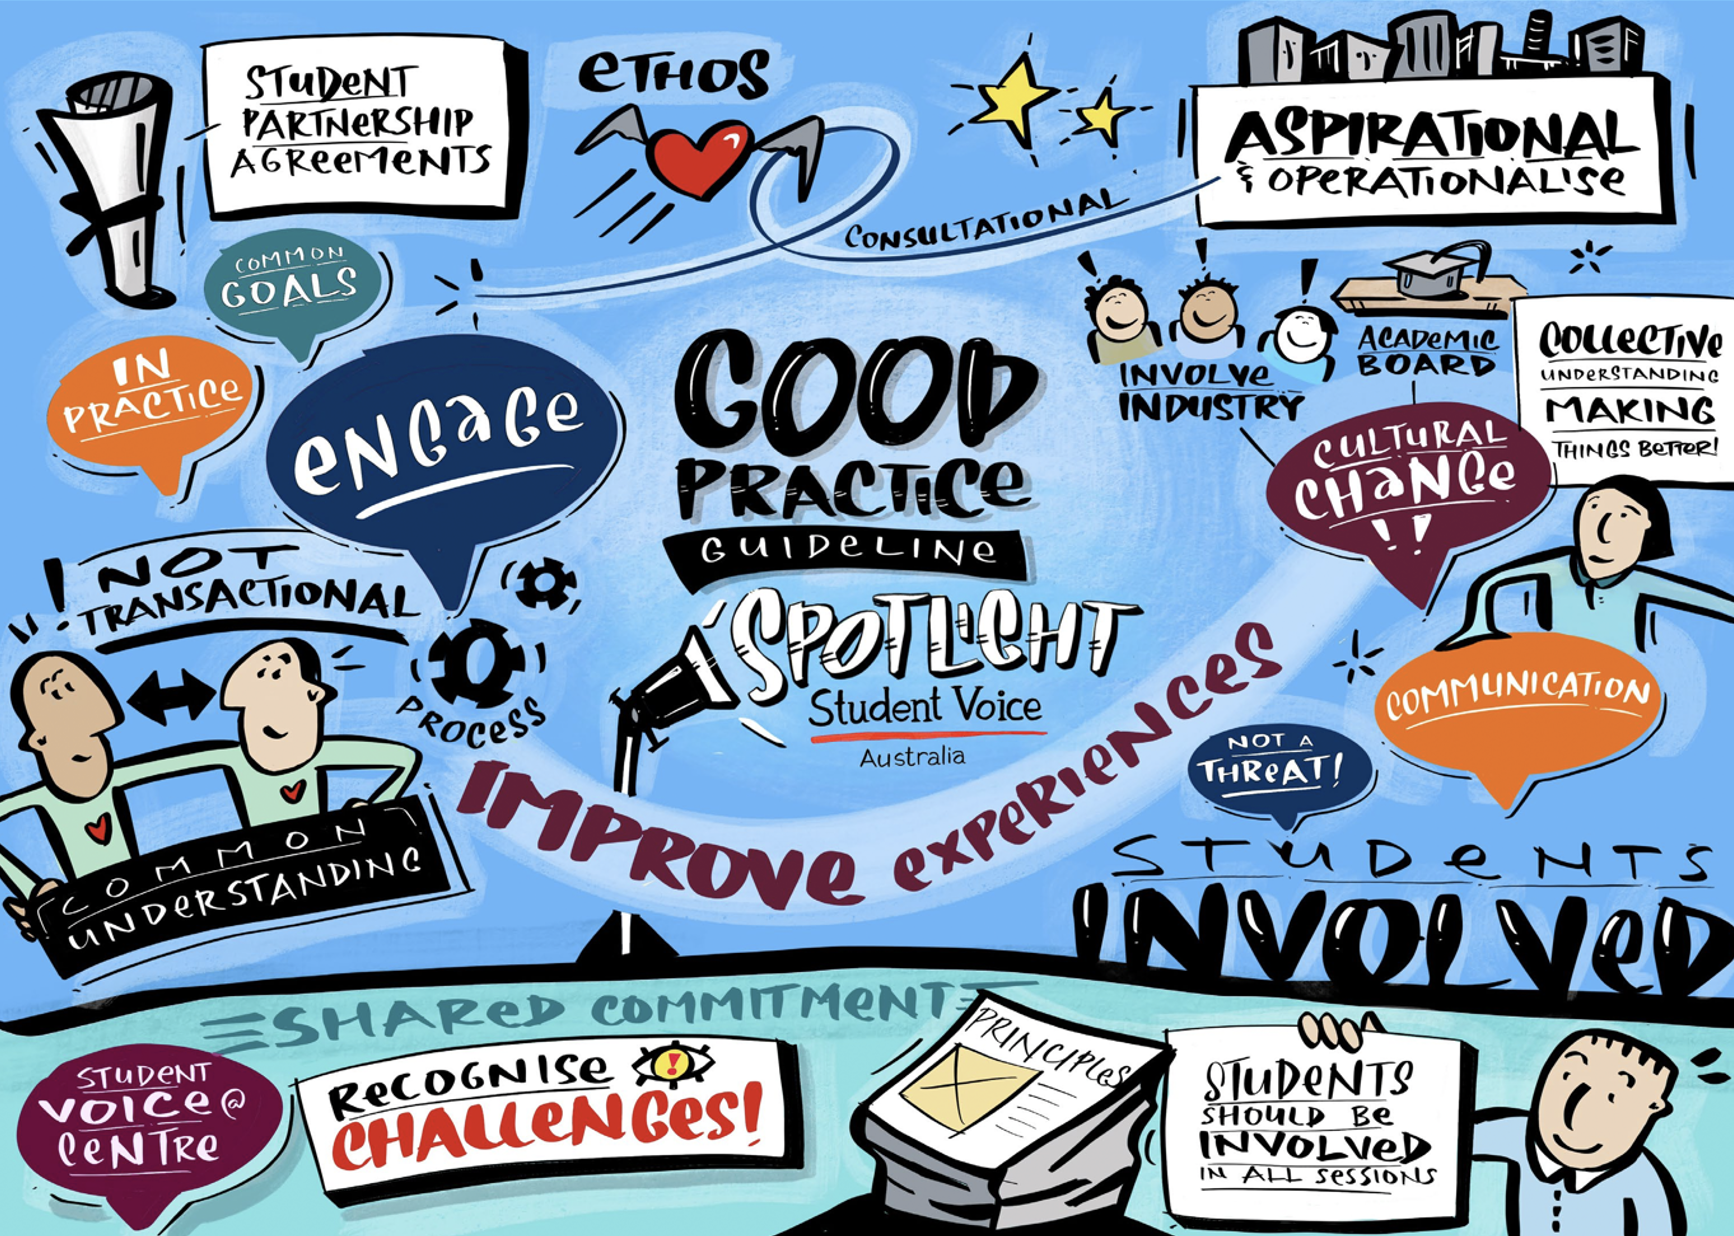 STUDENT
PARTNERSHIP
AGREEMENTS
ETHOS
CONSULTATIONAL
ASPIRATIONAL
& OPERATIONALISE
COMMON
GOALS
IN
PRACTICE
ENGAGE
GOOD
PRACTICE
GUIDELINE
SPOTLIGHT
Student Voice
Australia
INVOLVE
INDUSTRY
ACADEMIC
BOARD
COLLECTIVE
UNDERSTANDING
MAKING
THINGS BETTER!
CULTURAL
CHANGE
!!
! NOT
TRANSACTIONAL
PROCESS
COMMON
UNDERSTANDING
IMPROVE EXPERIENCES
COMMUNICATION
NOT A
THREAT!
STUDENTS
INVOLVED
SHARED COMMITMENT
STUDENT
VOICE @
CENTRE
RECOGNISE
CHALLENGES!
PRINCIPLES
STUDENTS
SHOULD BE
INVOLVED
IN ALL SESSIONS